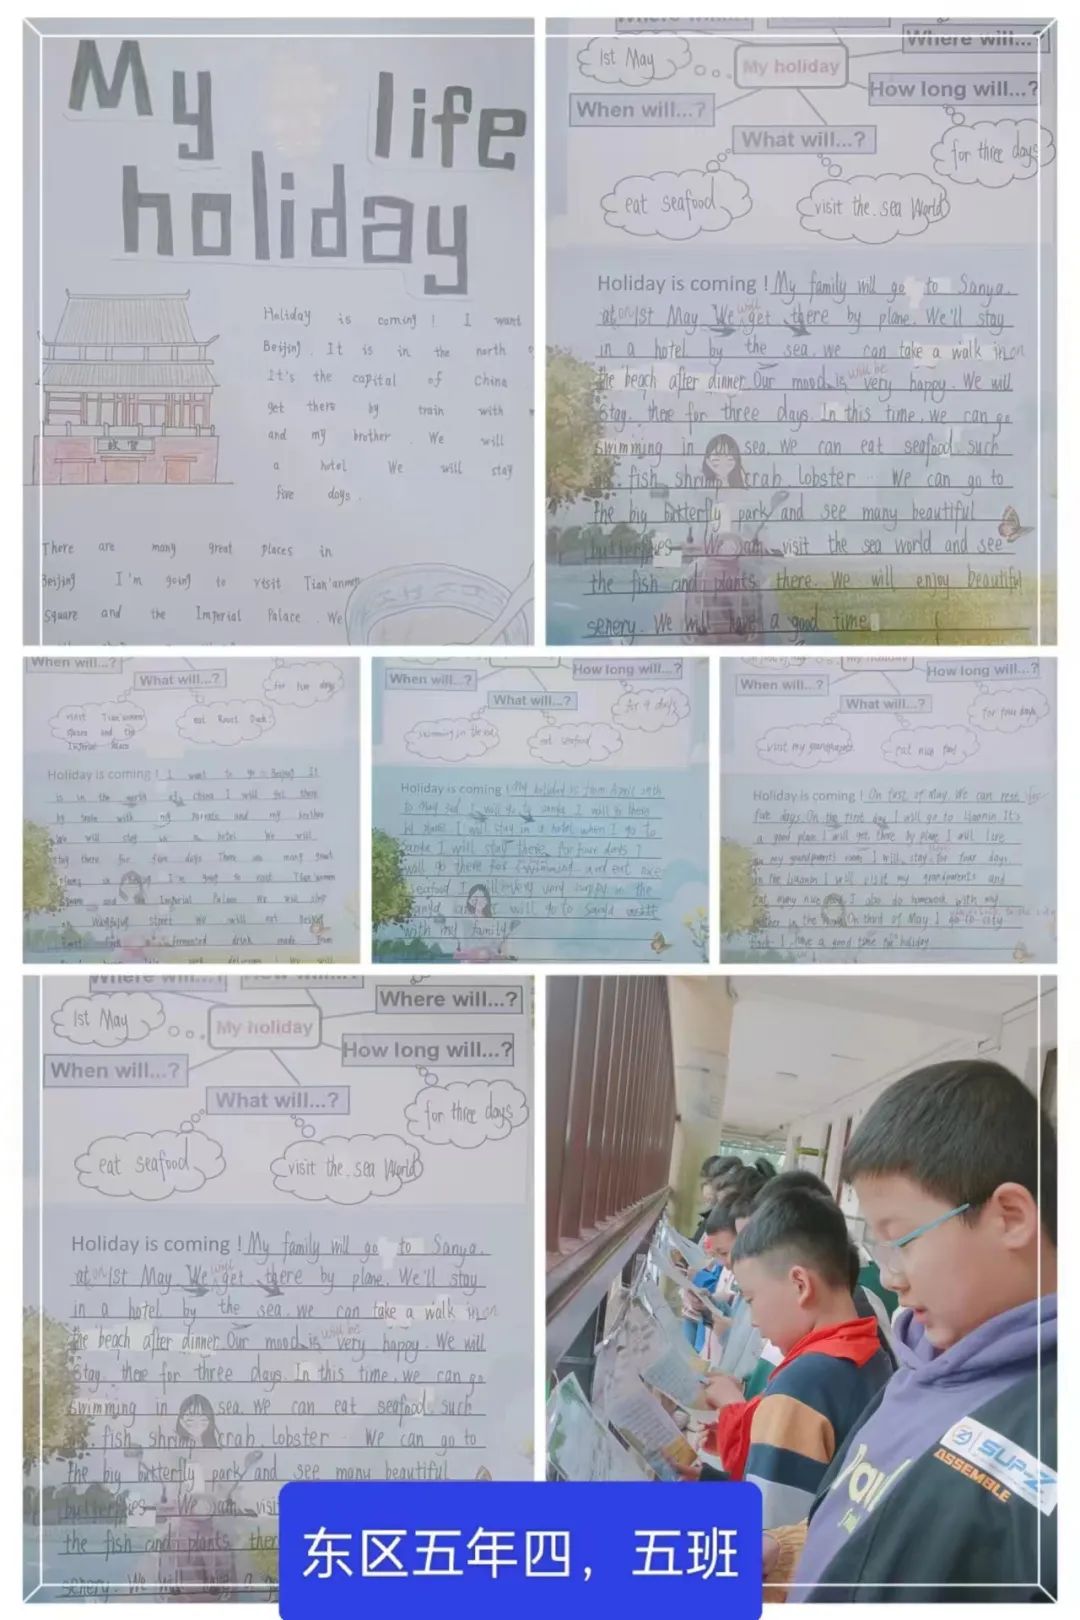 My life
holiday
故宫
Holiday is coming! I want
Beijing. It is in the north
It's the capital of China
get there by train with
and my brother. We will
a hotel We will stay
five days.
There are many great places in
Beijing I'm going to visit Tian'anmen
Square and the Imperial Palace. We
Where will...?
1st May
My holiday
How long will...?
When will...?
What will...?
for three days
eat seafood
visit the sea World
Holiday is coming! My family will go to Sanya.
at on 1st May We will get there by plane. We'll stay
in a hotel by the sea. we can take a walk in on
the beach after dinner Our mood is will be very happy. We will
Stay. there for three days. In this time, we can go
swimming in sea. we can eat seafood such
fish shrimp crab. lobster... We can go to
the big butterfly park and see many beautiful
butterflies We visit the sea world and see
the fish and plants there. We will enjoy beautiful
senery. We will have a good time
When will...?
What will...?
for five days
visit Tian'anmen
Square and the
Imperial Palace
eat Roast Duck
Holiday is coming! I want to go Beijing It
is in the north of china I will get there
by train with my parents and my brother
We will stay in a hotel We will
stay there for five days There are many great
places in I'm going to visit Tian'anmen
Square and Imperial Palace We
Wangfujing street We will eat Beijing
fermented drink made from
How long will...?
When will...?
What will...?
for 4 days
swimming in the sea
eat seafood
Holiday is coming! My holiday is from April 29th
to May 3rd I will go to I will go there
by plane I will stay in a hotel when I go to
I will stay there for four days I
will go there for swimming and eat nice
seafood I very in the
I will go to
with my family
My holiday
How long will...?
When will...?
What will...?
for four days
visit my grandparents
eat nice food
Holiday is coming! On first of May. We can rest for
five days. On the first day I will go to Liaonin It's
a good place. I will get there by plane I will live
in my grandparents room, I will stay for four days
in the Liaonin I will visit my grandparents and
eat many nice food I also do homework with my
in the On third of May I go to city
park. I have a good time holiday
Where will...?
How will...?
Where will...?
1st May
My holiday
How long will...?
When will...?
What will...?
for three days
eat seafood
visit the sea World
Holiday is coming! My family will go to Sanya.
at on 1st May We will get there by plane. We'll stay
in a hotel by the sea. we can take a walk in on
the beach after dinner Our mood is will be very happy. We will
Stay. there for three days. In this time, we can go
swimming in sea. we can eat seafood such
fish shrimp crab. lobster... We can go to
the big butterfly park and see many beautiful
butterflies We visi
the fish and plants ther
senery. We will have a go
SUP-Z
ASSEMBLE
东区五年四，五班